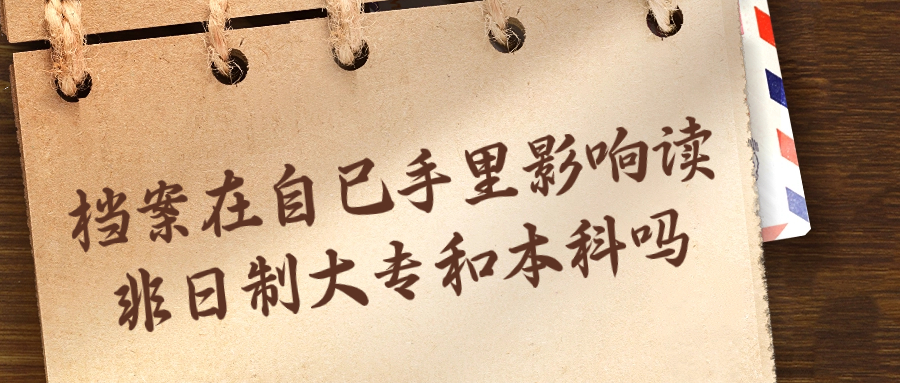 档案在自己手里影响读
非日制大专和本科吗